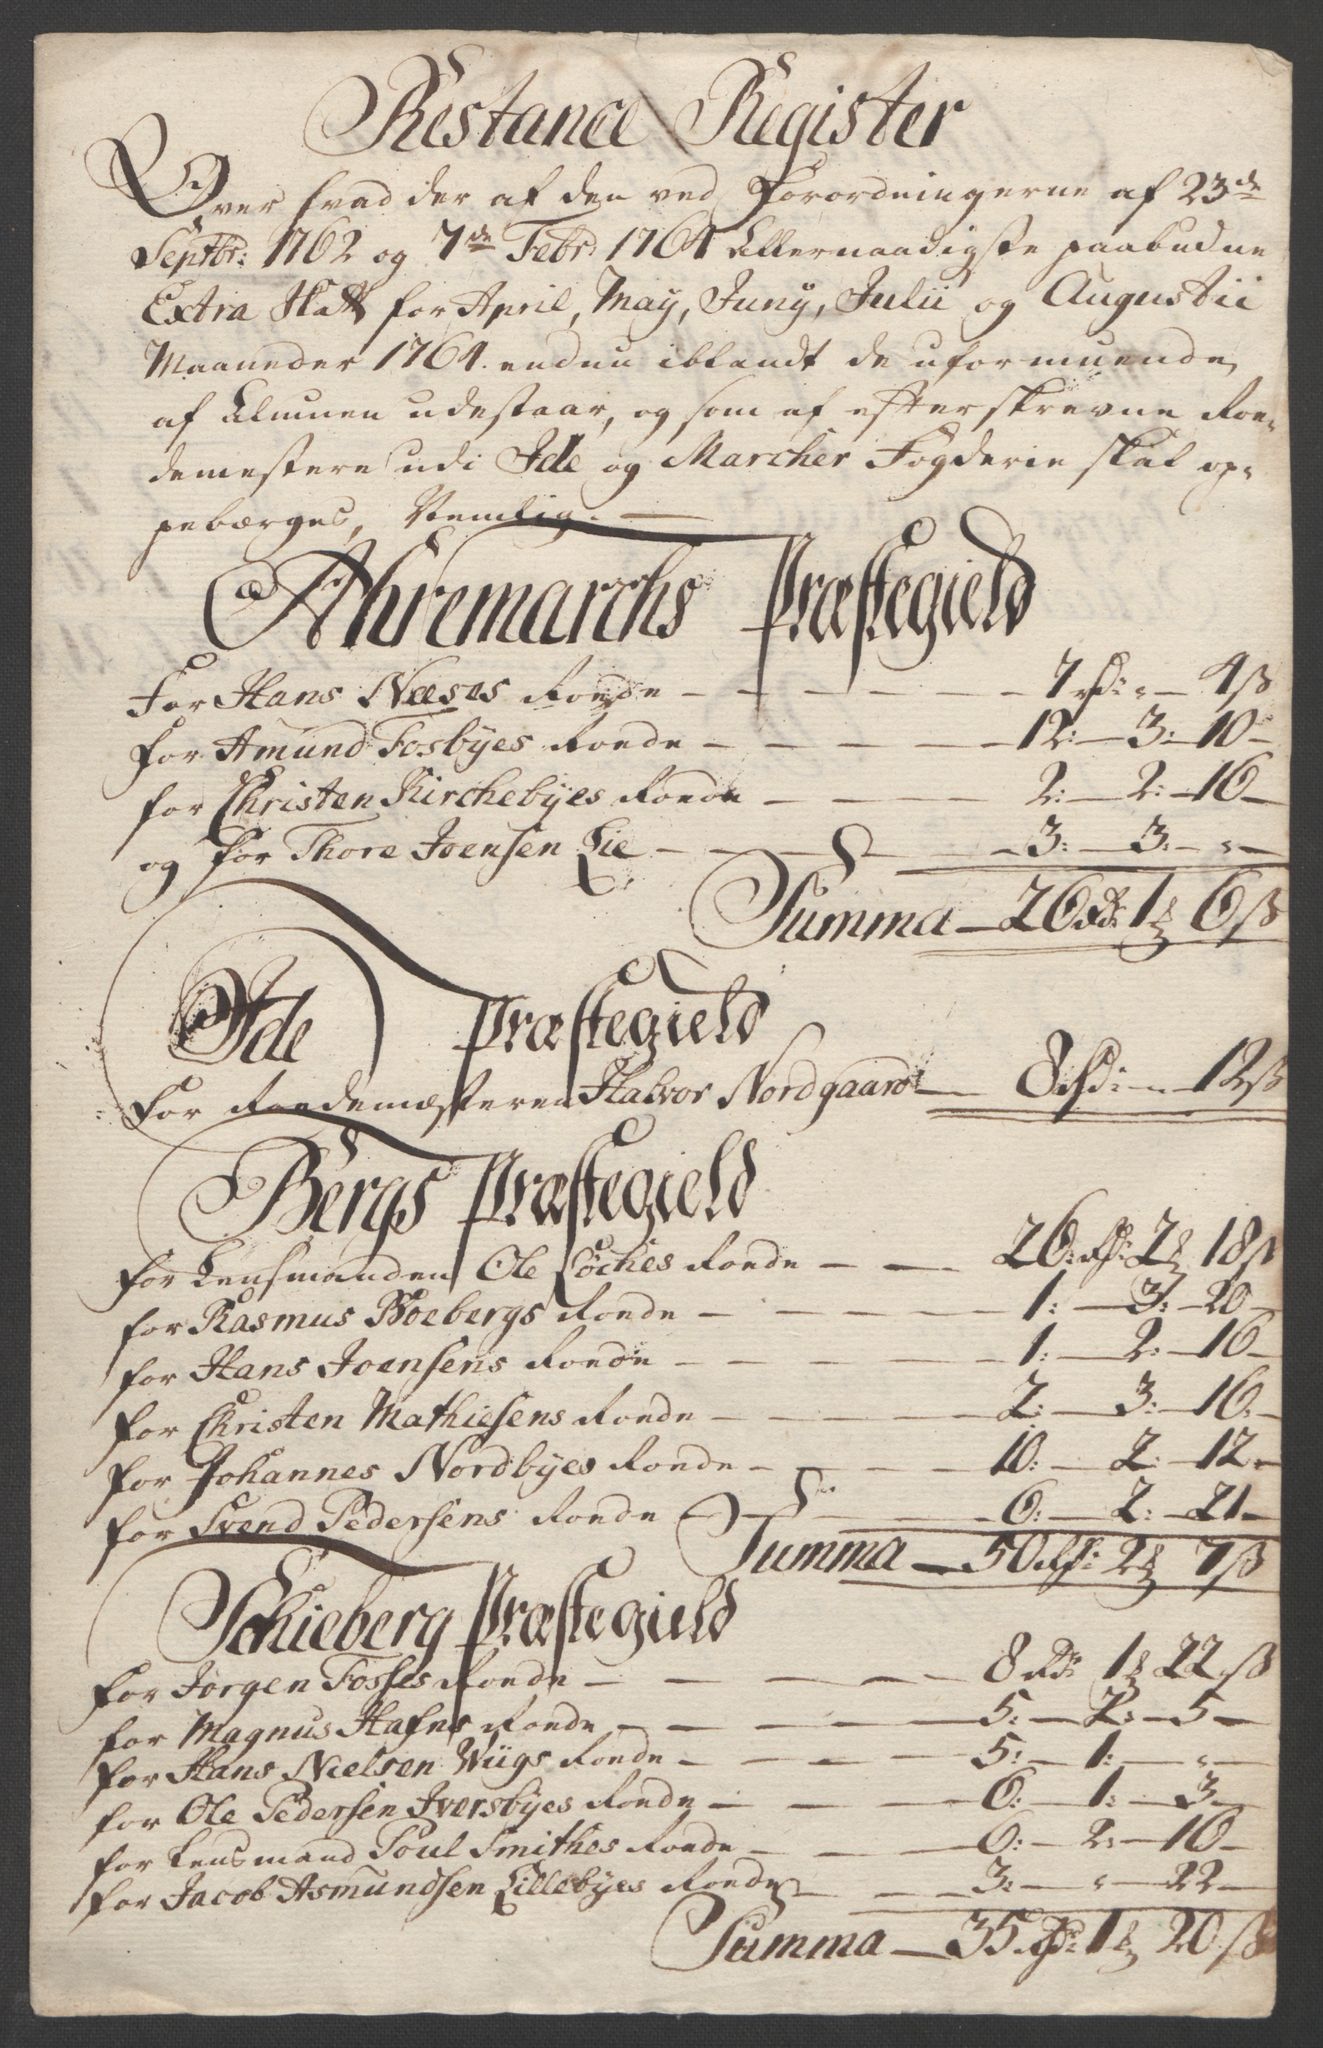 Restance Register
Over hvad der af den ved Forordningerne af 23de
Septbr: 1762 og 7de Febr: 1764 Allernaadigste paabudne
Extra Skatt for April, May, Juny, Julii og Augustii
Maaneder 1764. endnu iblandt de uformuende
af Almuen udestaar, og som af efterskrevne Roe-
demestere udi Ide og Marcher Fogderie skal op-
pebærges, Nemlig. —
Ahremarchs Præstegield
For Hans Næses Roede — — — — 7 rd: " — 4 ß
for Amund Fosbyes Roede — — — — 12: — 3: — 10 —
for Christen Kirchebyes Roede — — — 2: — 2: — 16 —
og for Thore Joensen Lie — — — — 3: — 3: — " —
Summa — 26 Rd: 1 ₰ 6 ß
Ide Præstegield
for Roedemesteren Halvor Nordgaard — 8 Rd: " — 12 ß
Bergs Præstegield
for Lensmanden Ole Löches Roede — — 26: Rd: 2 ₰ 18 ß
for Rasmus Boebergs Roede — — — 1: — 3: — 20 —
for Hans Joensens Roede — — — — 1: — 2: — 16 —
for Christen Mathiesens Roede — — — 2: — 3: — 16: —
for Johannes Nordbyes Roede — — — 10: — 2: — 12 —
for Svend Pedersens Roede — — — 6: — 2: — 21 —
Summa — 50 Rd: 2 ₰ 7 ß
Schieberg Præstegield
for Jörgen Fosses Roede — — — — 8 Rd: 1 ₰ 22 ß
for Magnus Hafns Roede — — — — 5: — 2: — 5 —
for Hans Nielsen Wiigs Roede — — — 5: — 1: — " —
for Ole Pedersen Iversbyes Roede — — — 6: — 1: — 3 —
for Lensmand Poul Smithes Roede — — — 6: — 2: — 16 —
for Jacob Asmundsen Lillebyes Roede — — 3: — " — 22 —
Summa — 35 Rd: 1 ₰ 20 ß